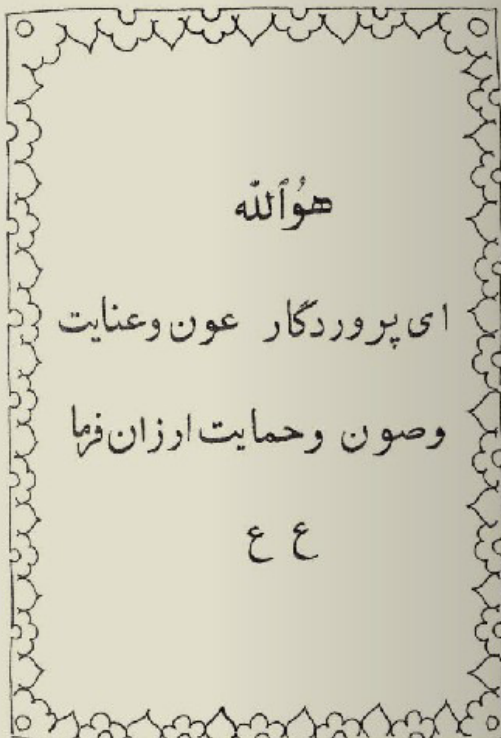 هُوٱللّه
ای پروردگار عون وعنایت
وصون وحمایت ارزان فرما
ع ع